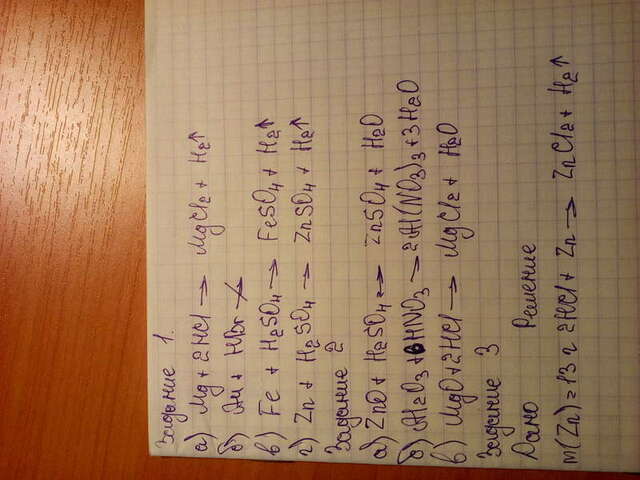 Задание 1.
а) Mg + 2HCl → MgCl2 + H2↑
б) Au + HBr ↛
в) Fe + H2SO4 → FeSO4 + H2↑
г) Zn + H2SO4 → ZnSO4 + H2↑
Задание 2
а) ZnO + H2SO4 → ZnSO4 + H2O
б) Al2O3 + 6HNO3 → 2Al(NO3)3 + 3H2O
в) MgO + 2HCl → MgCl2 + H2O
Задание 3
Дано Решение
m(Zn) = 13 г 2HCl + Zn → ZnCl2 + H2↑